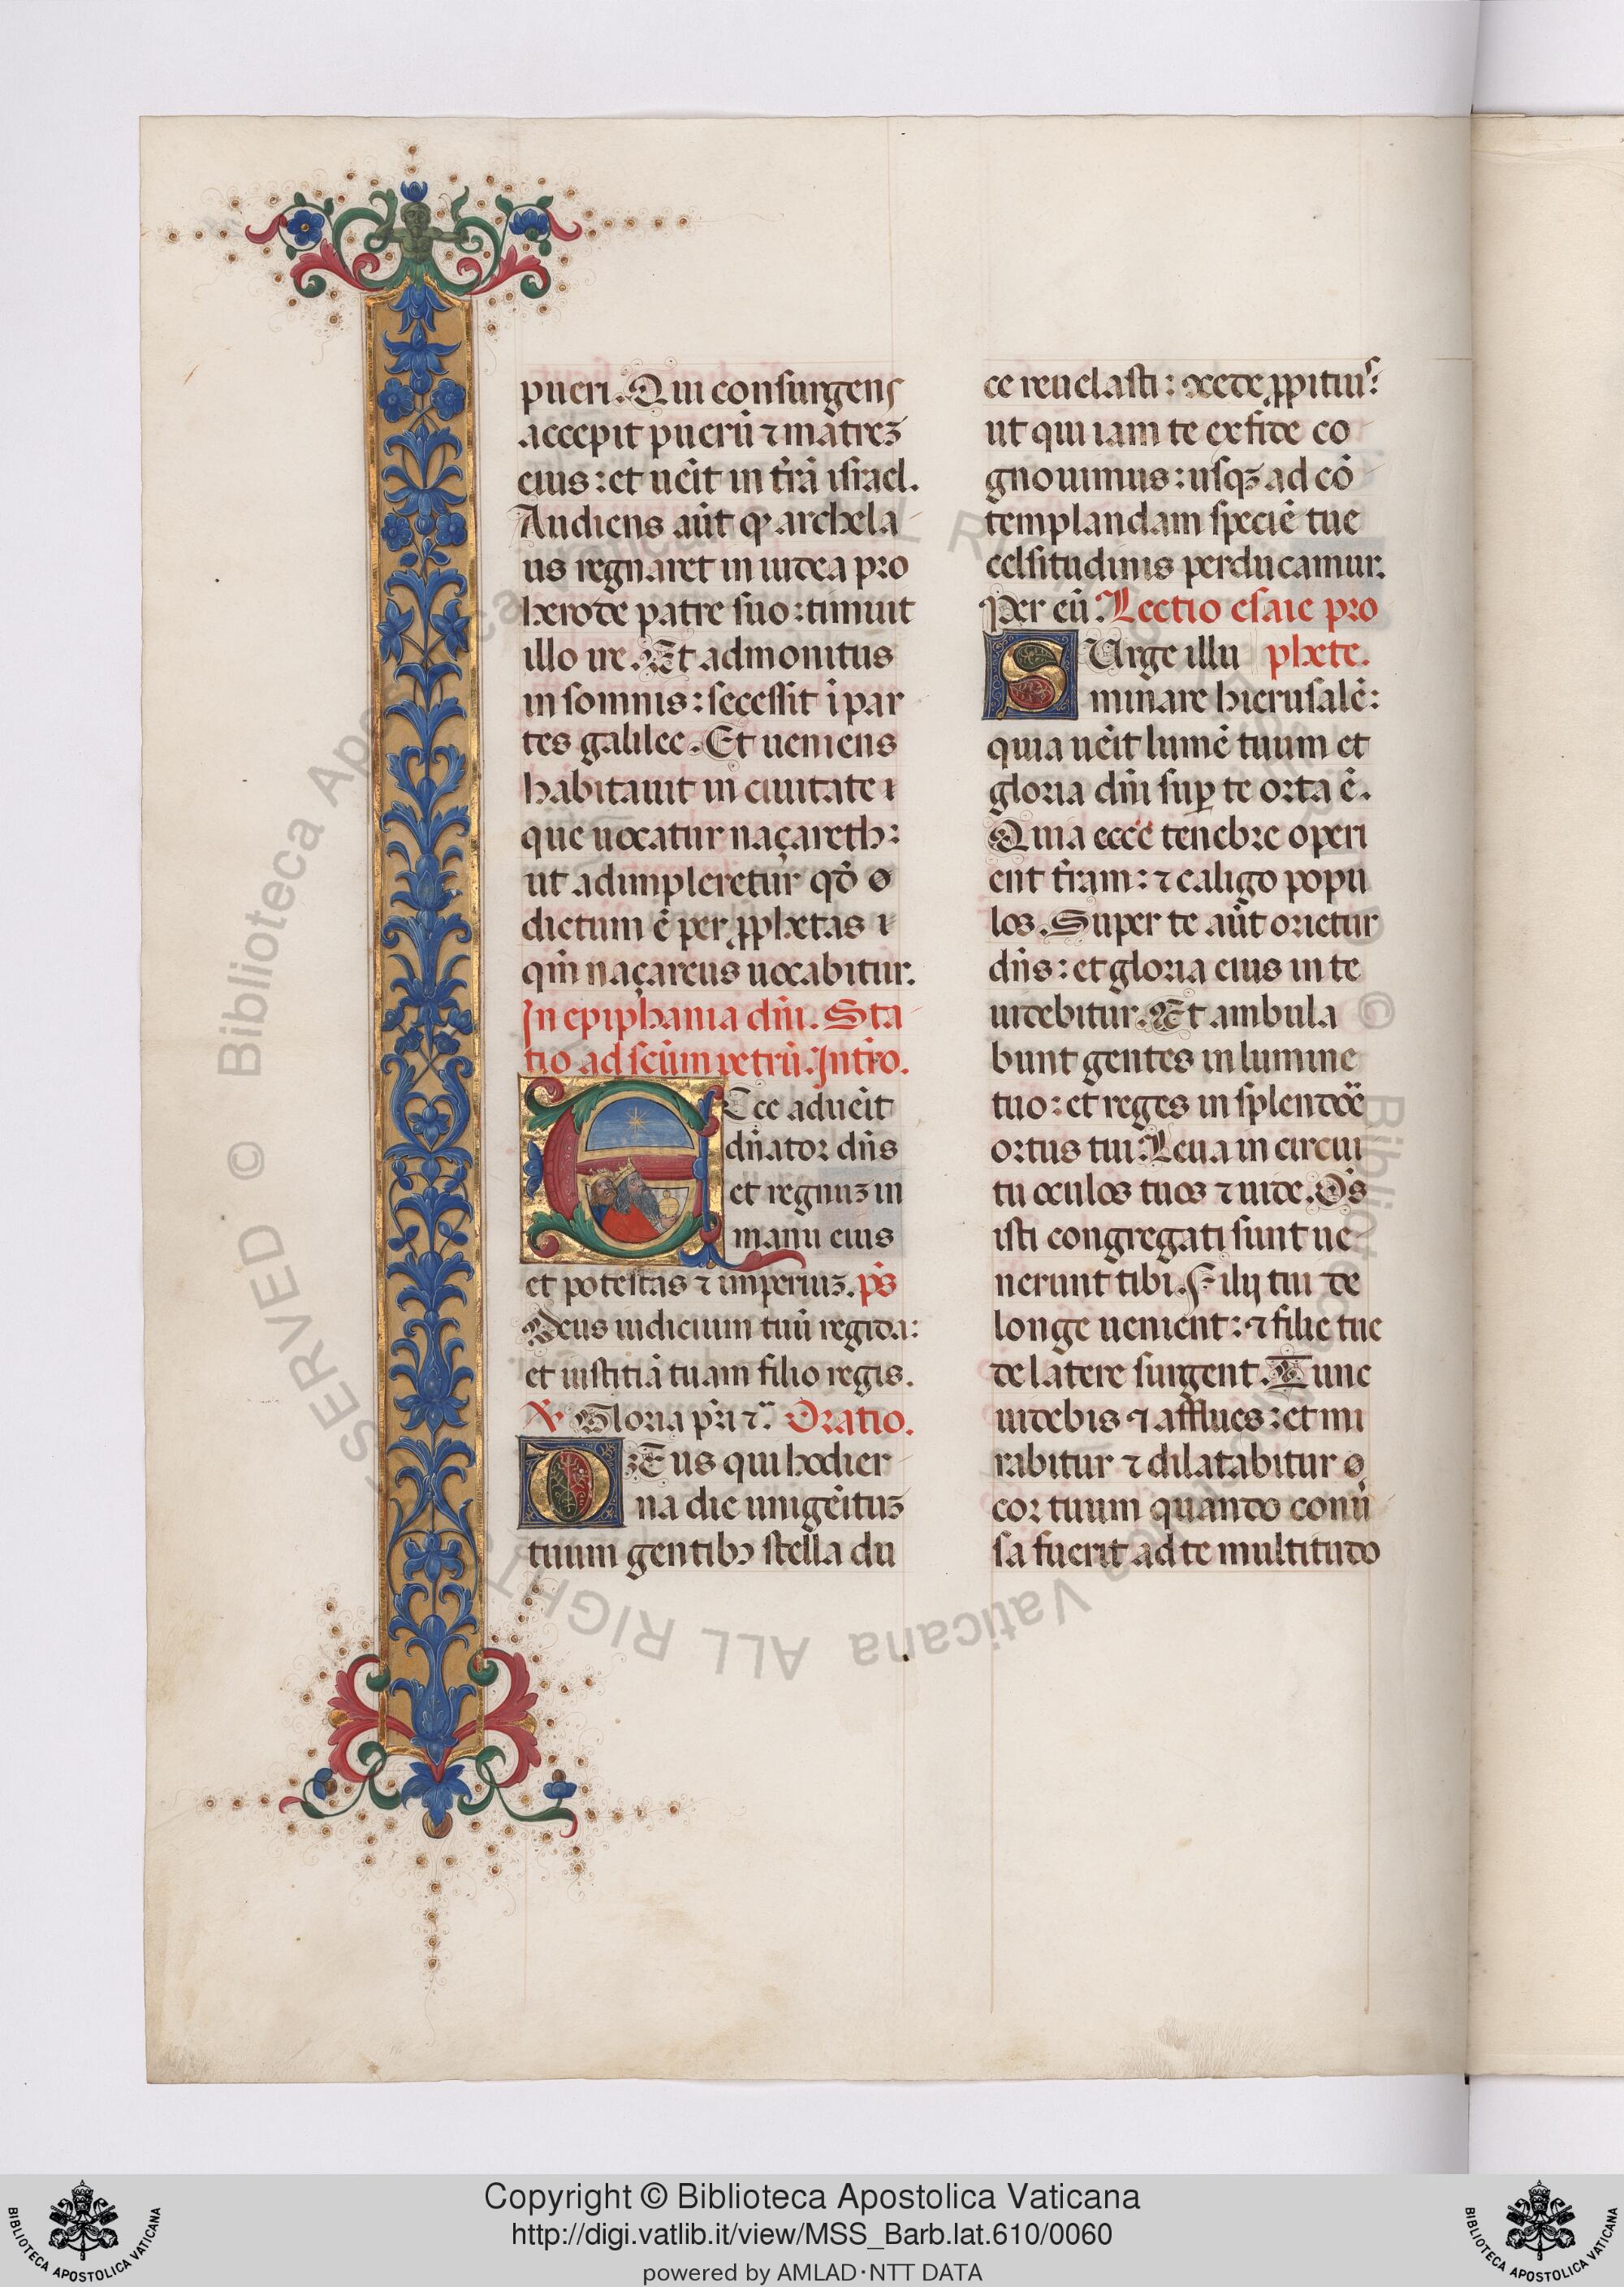 pueri. Qui consurgens
accepit puerū ⁊ matreʒ
eius: et uēit in t̄rā israel.
Audiens aūt qꝫ archela
us regnaret in iudea pro
herode patre suo: timuit
illo ire. Et admonitus
in somnis: secessit ī par
tes galilee. Et ueniens
habitauit in ciuitate
que uocatur naçareth:
ut adimpleretur qđ
dictum ē per ꝓphetas
qm̄ naçareus uocabitur.
In epiphania dn̄i. Sta
tio ad scūm petrū. Intro.
Ecce aduēit
dn̄ator dn̄s
et regnuʒ in
manu eius
et potestas ⁊ imperiuʒ. p̄s
Deus iudicium tuū regi da:
et iustitiā tuam filio regis.
℣ Gloria pr̄i ⁊c̄ Oratio.
DEus qui hodier
na die unigēituʒ
tuum gentibꝫ stella du
ce reuelasti: ↄcede ꝓpitiuˢ:
ut qui iam te ex fide co
gnouimus: usqꝫ ad cō
templandam speciē tue
celsitudinis perducamur.
Per eū. Lectio esaie pro
SUrge illu phete.
minare hierusalē:
quia uēit lumē tuum et
gloria dn̄i suꝑ te orta ē.
Quia ecce tenebre operi
ent t̄ram: ⁊ caligo popu
los. Super te aūt orietur
dn̄s: et gloria eius in te
uidebitur. Et ambula
bunt gentes in lumine
tuo: et reges in splendore
ortus tui. Leua in circui
tu oculos tuos ⁊ uide. Oēs
isti congregati sunt ue
nerunt tibi. Filij tui de
longe uenient: ⁊ filie tue
de latere surgent. Tunc
uidebis ⁊ afflues: et mi
rabitur ⁊ dilatabitur
cor tuum quando conū
sa fuerit ad te multitudo
© Biblioteca Apostolica Vaticana ALL RIGHTS RESERVED
Copyright © Biblioteca Apostolica Vaticana
http://digi.vatlib.it/view/MSS_Barb.lat.610/0060
powered by AMLAD·NTT DATA
BIBLIOTECA APOSTOLICA VATICANA
BIBLIOTECA APOSTOLICA VATICANA